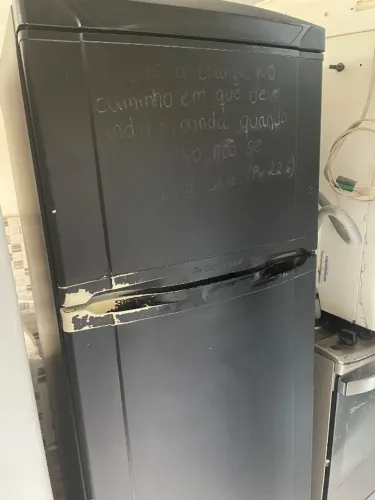 criança no
caminho em que deve
andar, ainda quando
não se
dele (Pv 22.6)